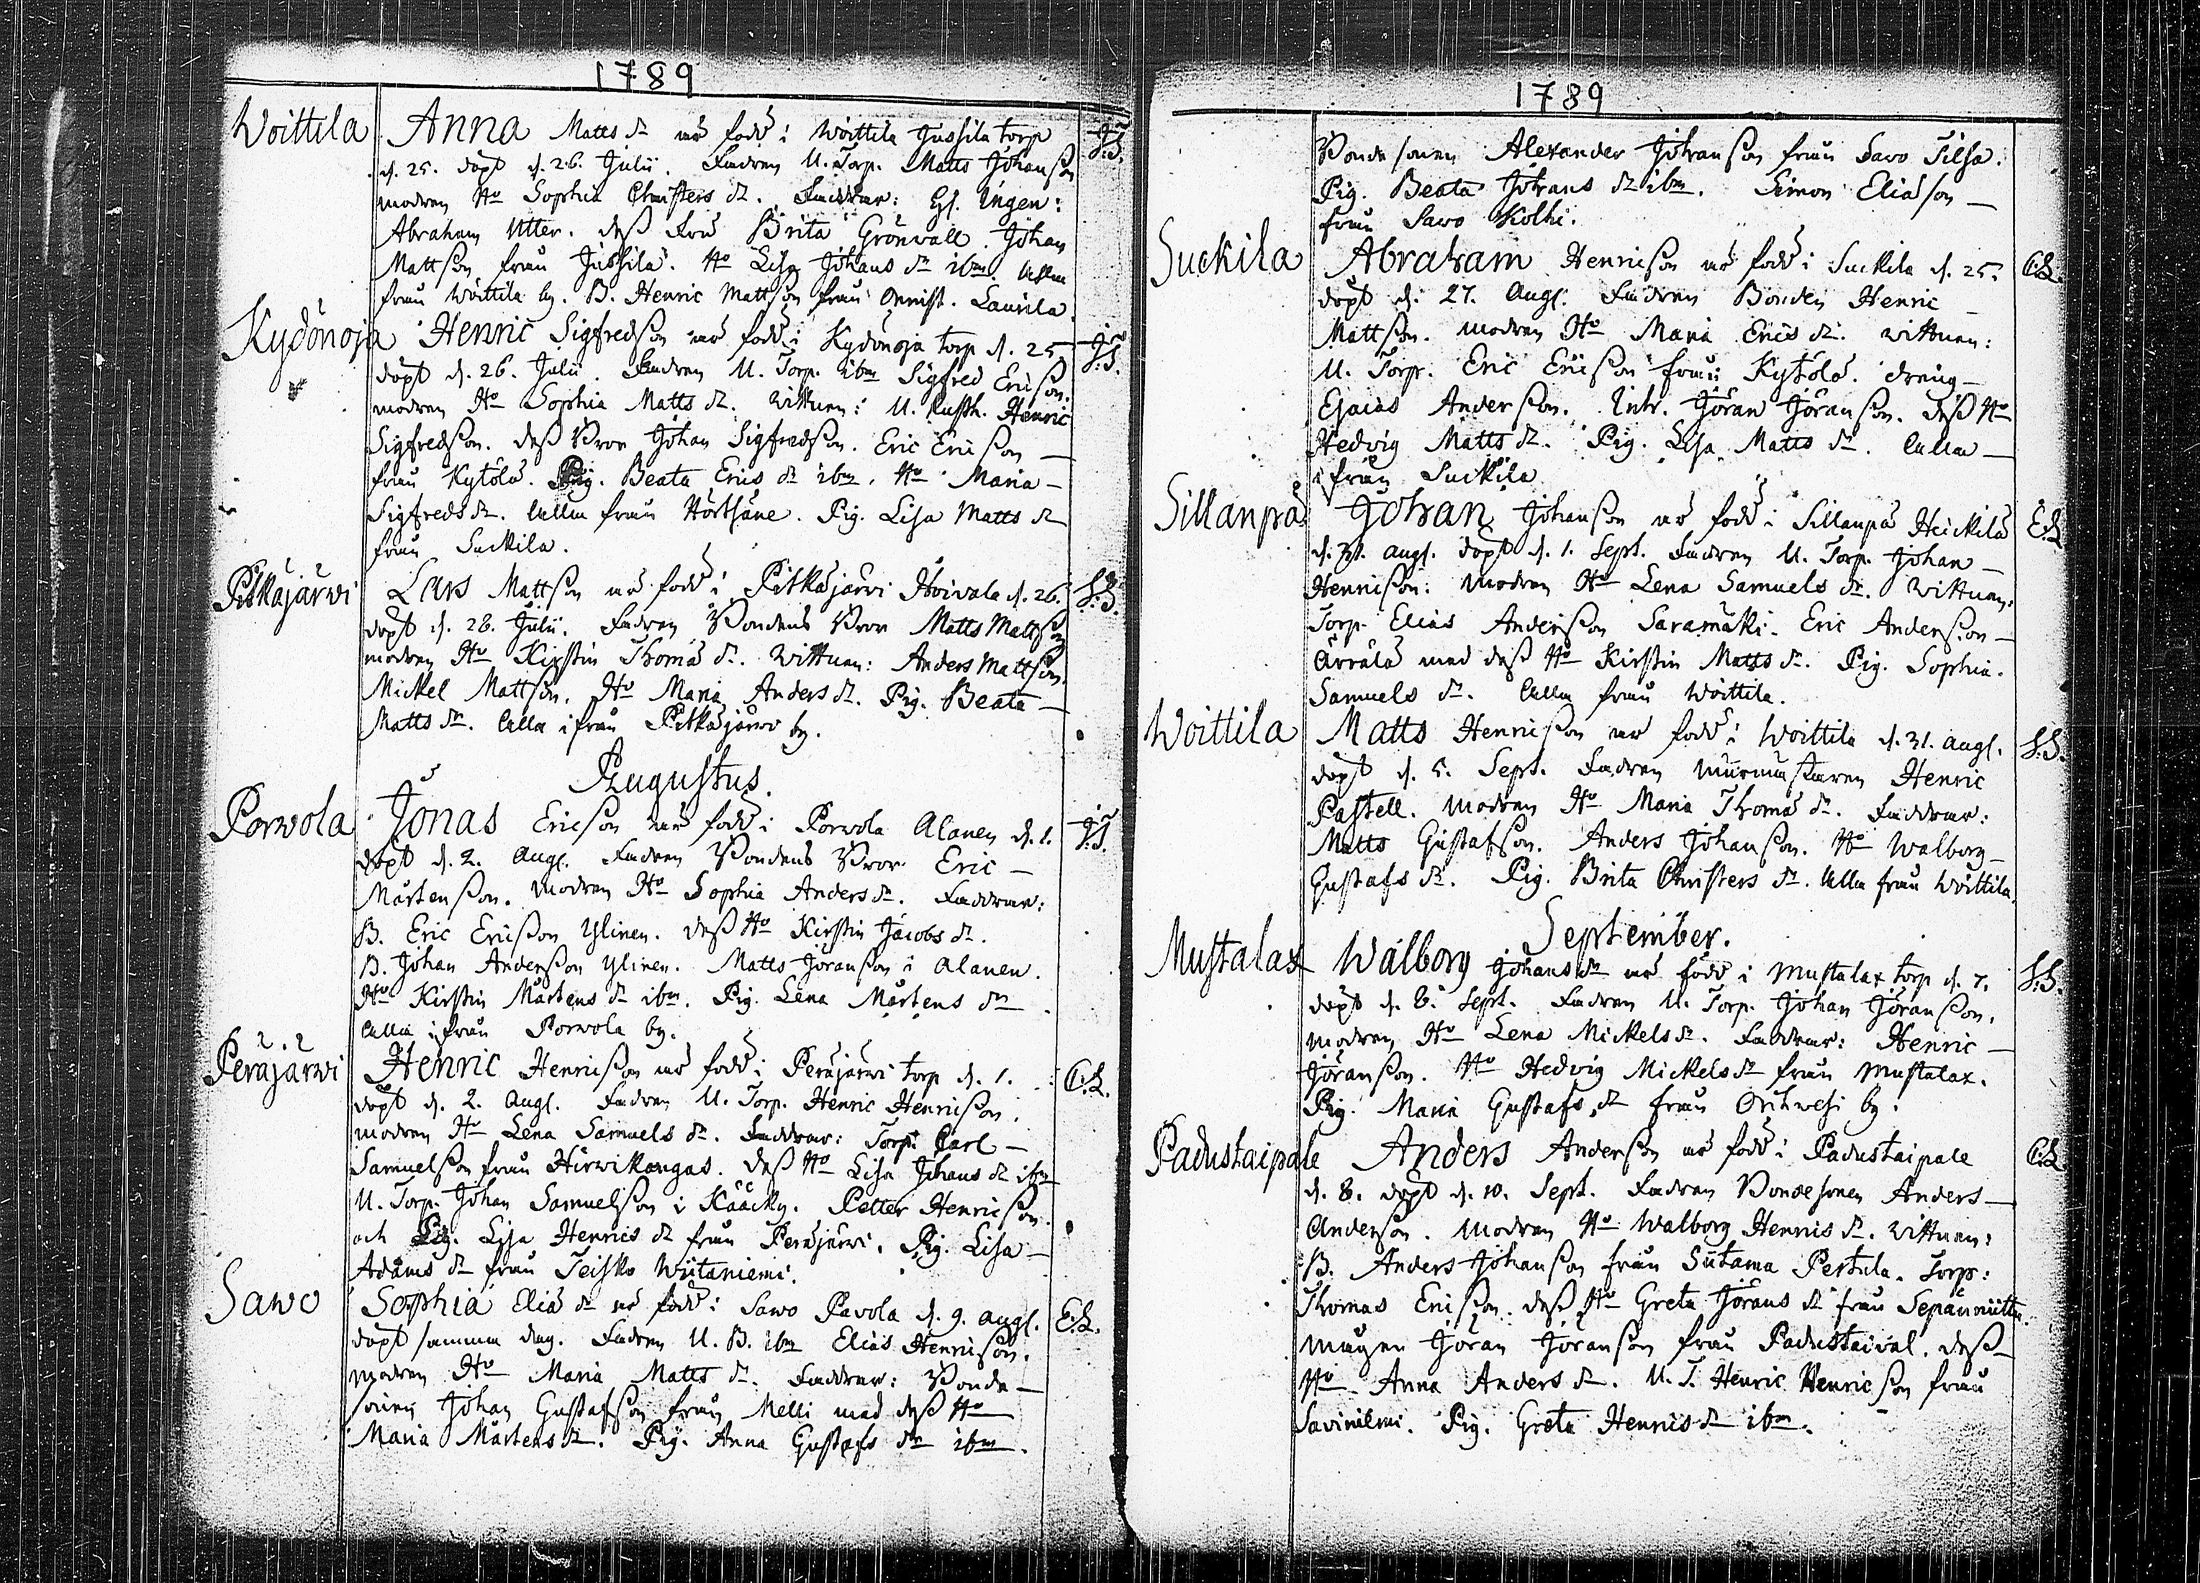 1789
Woittila Anna Matts dr är född i Woittila Jussila torp J:S.
d. 25. döpt d. 26. Julii. Fadren U. Torp. Matts Johanson
modren Ho Sophia Christers dr. Faddrar: Gl. Ingen:
Abraham Utter. dess Fru Brita Grönvall. Johan
Mattson från Jussila. Ho Lisa Johans dr ibm. alla
från Woittila by. B. Henric Mattson från Onnist. Laurila.
Kydönoja Henric Sigfredson är född i Kydönoja torp d. 25 J:S.
döpt d. 26. Julii. Fadren U. Torp. ibm Sigfred Ericson.
modren Ho Sophia Matts dr. Wittnen: U. Rusth. Henric
Sigfredson. dess Bror Johan Sigfredson. Eric Ericson
från Kytölä. Pig. Beata Erics dr ibm. Ho Maria
Sigfreds dr. alla från Hörtsäne. Pig. Lisa Matts dr
från Suckila.
Pitkäjärwi Lars Mattson är född i Pitkäjärvi Hoivala d. 26. S:S.
döpt d. 28. Julii. Fadren Bondens Bror Matts Mattson
modren Ho Kirstin Thomä dr. Wittnen: Anders Mattson.
Mickel Mattson. Ho Maria Anders dr. Pig. Beata
Matts dr. alla ifrån Pitkäjärvi by.
Augustus.
Porwola Jonas Ericson är född i Porvola Alanen d. 1. J:S.
döpt d. 2. Aug. Fadren Bondens Bror Eric
Mårtenson. Modren Ho Sophia Anders dr. Faddrar:
B. Eric Ericson Ylinen. dess Ho Kirstin Jacobs dr.
B. Johan Anderson Ylinen. Matts Göranson i Alanen.
Ho Kirstin Mårtens dr ibm. Pig. Lena Mårtens dr
alla ifrån Porvola by.
Peräjärwi Henric Henricson är född i Peräjärvi torp d. 1. C:L.
döpt d. 2. Aug. Fadren U. Torp. Henric Henricson.
modren Ho Lena Samuels dr. Faddrar: Torp. Carl
Samuelson från Hirwikangas. dess Ho Lisa Johans dr ibm
U. Torp. Johan Samuelson i Kääcky. Petter Henricson.
och Pig. Lisa Henrics dr från Peräjärvi. Pig. Lisa
Adams dr från Teisko Wiitaniemi.
Sawo Sophia Eliä dr är född i Sawo Pavola d. 9. Aug. E:L.
döpt samma dag. Fadren U. B. ibm Elias Henricson.
modren Ho Maria Matts dr. Faddrar: Bonde
sonen Johan Gustafson från Melli med dess Ho
Maria Mårtens dr. Pig. Anna Gustafs dr ibm.
1789
Bonde sonen Alexander Johanson från Savo Tilsa.
Pig. Beata Johans dr ibm. Simon Eliason
från Savo Kolhi.
Suckila Abraham Henricson är född i Suckila d. 25. C:L.
döpt d. 27. Aug. Fadren Bonden Henric
Mattson. modren Ho Maria Erics dr. Wittnen:
U. Torp. Eric Ericson från Kytölä. dräng
Esaias Anderson. Inh. Göran Göranson. dess Ho
Hedvig Matts dr. Pig. Lisa Matts dr. alla
ifrån Suckila
Sillanpä Johan Johanson är född i Sillanpä Heickilä E:L
d. 31. aug. döpt d. 1. Sept. Fadren U. Torp. Johan
Henricson: Modren Ho Lena Samuels dr. Wittnen:
Torp. Elias Anderson Saramäki. Eric Anderson
Ärrälä med dess Ho Kirstin Matts dr. Pig. Sophia
Samuels dr. alla från Woittila.
Woittila Matts Henricson är född i Woittila d. 31. aug. S:S.
döpt d. 5. Sept. Fadren Murmästaren Henric
Pastell. Modren Ho Maria Thomä dr. Faddrar:
Matts Gustafson. Anders Johanson. Ho Walborg
Gustafs dr. Pig. Brita Christers dr. alla från Woittila.
September.
Mustalax Walborg Johans dr är född i Mustalax torp d. 7. S:S.
döpt d. 8. Sept. Fadren U. Torp. Johan Göranson.
modren Ho Lena Mickels dr. Faddrar: Henric
Göranson. Ho Hedvig Mickels dr från Mustalax.
Pig. Maria Gustafs dr från Orihwesi by.
Padustaipale Anders Anderson är född i Padustaipale C:L
d. 8. döpt d. 10. Sept. Fadren Bondesonen Anders
Anderson. Modren Ho Walborg Henrics dr. Wittnen:
B. Anders Johanson från Sutama Pertula. Torp:
Thomas Ericson. dess Ho Greta Görans dr från Sepänniitty.
Mågen Göran Göranson från Padustaival. dess
Ho Anna Anders dr. U. T. Henric Henricson från
Saviniemi. Pig. Greta Henrics dr ibm.